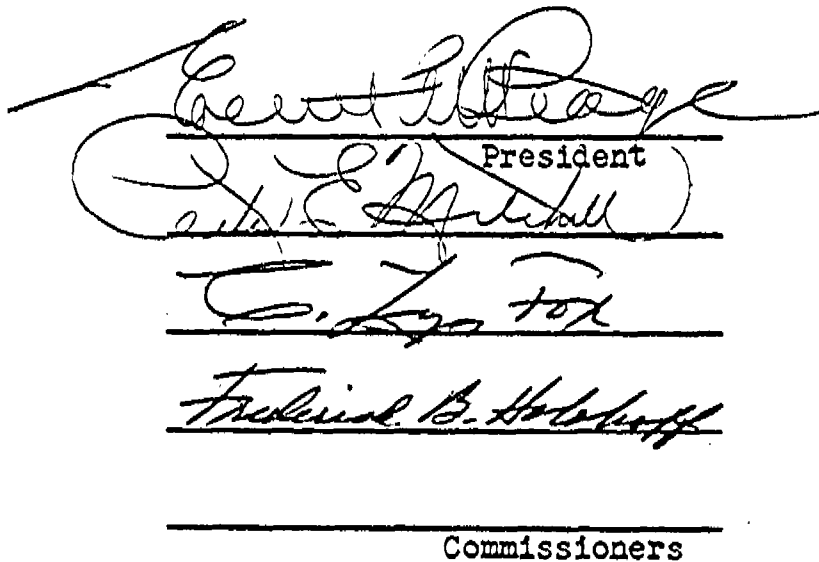 President
Peter E. Mitchell
C. Lyn Fox
Frederick B. Holoboff
Commissioners